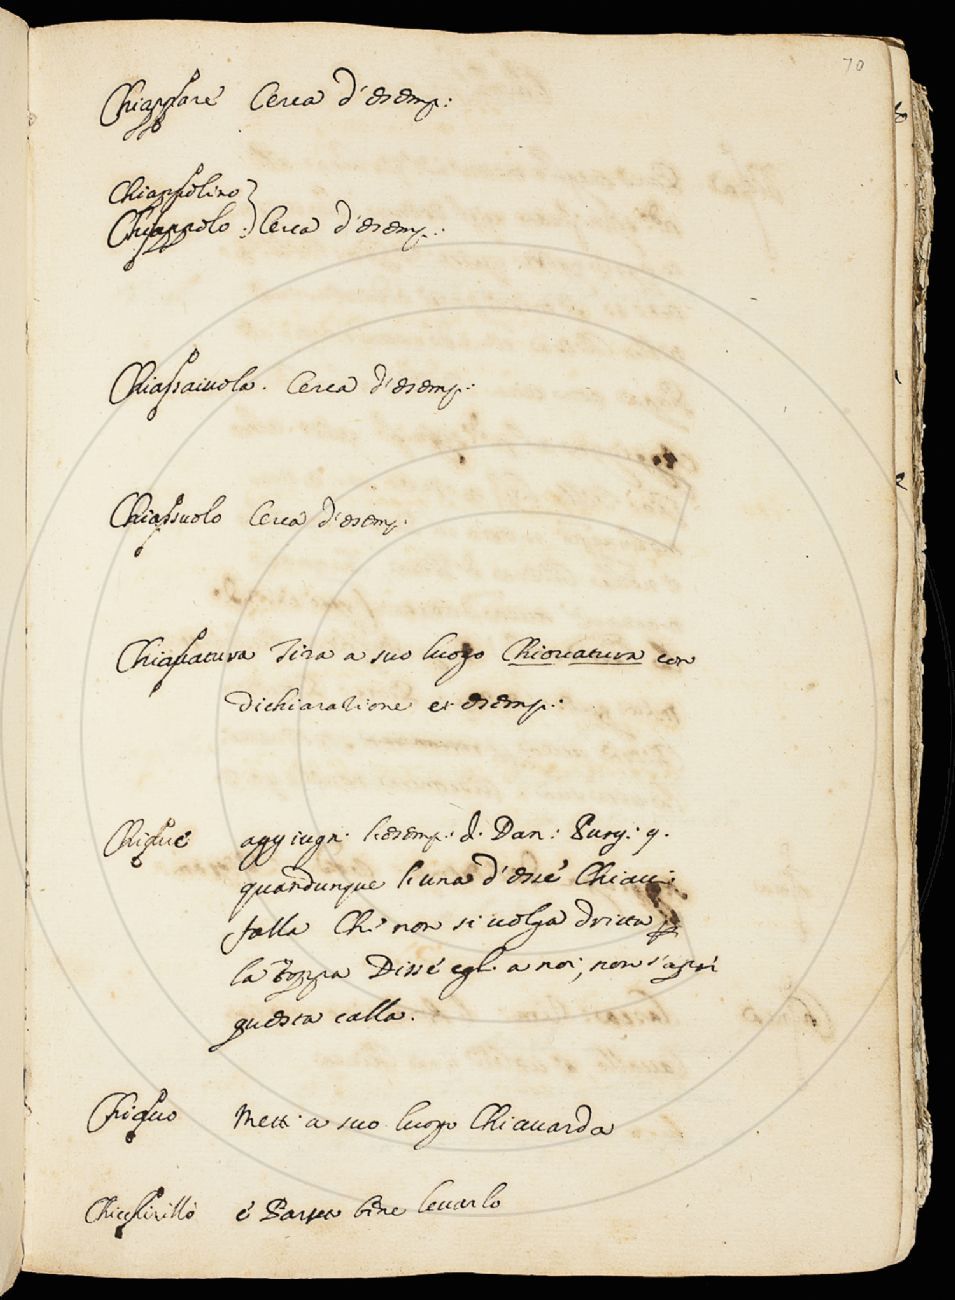 70
Chiappare Cerca d'esemp:
Chiappolino
Chiappolo Cerca d'esemp:
Chiassaiuola. Cerca d'esemp:
Chiassuolo Cerca d'esemp:
Tira a suo luogo Chiovatura con
dichiarazione et esemp:
aggiugn: l'esemp: di Dan: Purg: 9.
quandunque l'una d'esse Chiavi
falla Che non si volga dritta p
la toppa Disse egli a noi, non s'apri
questa calla.
Metti a suo luogo Chiavarda
è Parso bene levarlo